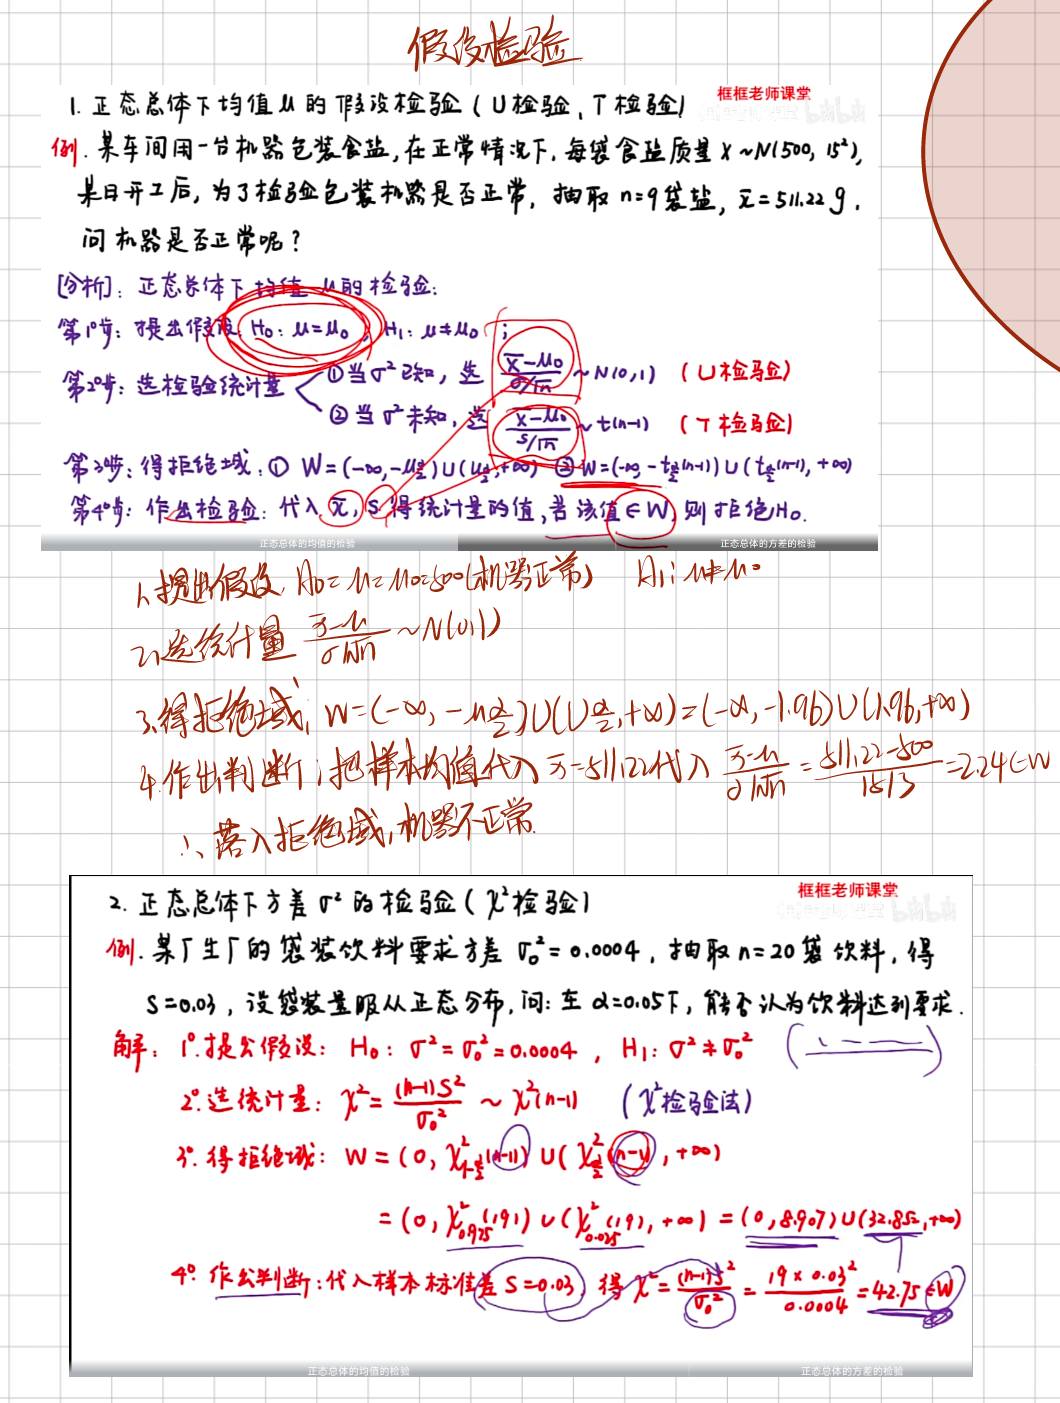 假设检验
1. 正态总体下均值 μ 的假设检验 ( U检验、T检验)
框框老师课堂
例. 某车间用一台机器包装食盐,在正常情况下,每袋食盐质量 X ~ N(500, 15²),
某日开工后,为了检验包装机器是否正常,抽取 n=9袋盐, x̄=511.22 g.
问机器是否正常呢?
[分析]: 正态总体下均值 μ的检验:
第1°步: 提出假设 H₀: μ=μ₀ ; H₁: μ≠μ₀ ;
第2°步: 选检验统计量 ①当σ²已知, 选 (x̄-μ₀)/(σ/√n) ~ N(0,1) (U检验)
②当σ²未知, 选 (x̄-μ₀)/(s/√n) ~ t(n-1) (T检验)
第3°步: 得拒绝域: ① W=(-∞,-μ_{α/2})∪(μ_{α/2},+∞) ② W=(-∞,-t_{α/2}(n-1))∪(t_{α/2}(n-1),+∞)
第4°步: 作出检验: 代入 x̄, S, 得统计量的值, 若该值∈W, 则拒绝H₀.
正态总体的均值的检验 正态总体的方差的检验
1、提出假设, H₀= μ=μ₀=500(机器正常) H₁: μ≠μ₀
2、选统计量 (x̄-μ)/(σ/√n) ~N(0,1)
3.得拒绝域; W=(-∞, -μ_{α/2})∪(U_{α/2},+∞)=(-∞,-1.96)∪(1.96,+∞)
4.作出判断;把样本均值代入 x̄=511.22代入 (x̄-μ)/(σ/√n) = (511.22-500)/(15/3) =2.24∈W
∴、落入拒绝域,机器不正常.
框框老师课堂
2. 正态总体下方差σ²的检验 ( χ²检验)
例. 某厂生厂的袋装饮料要求方差 σ₀²=0.0004, 抽取 n=20袋饮料, 得
S=0.03, 设袋装量服从正态分布,问: 在 α=0.05下, 能否认为饮料达到要求.
解: 1°.提出假设: H₀: σ²=σ₀²=0.0004 , H₁: σ²≠σ₀²
2°.选统计量: χ²= (n-1)S²/σ₀² ~ χ²(n-1) (χ²检验法)
3°. 得拒绝域: W=(0, χ²_{1-α/2}(n-1))∪(χ²_{α/2}(n-1), +∞)
=(0, χ²_{0.975}(19))∪(χ²_{0.025}(19), +∞) =(0,8.907)∪(32.852,+∞)
4°. 作出判断: 代入样本标准差 S=0.03, 得 χ²= (n-1)S²/σ₀² = 19×0.03²/0.0004 =42.75 ∈W
正态总体的均值的检验 正态总体的方差的检验